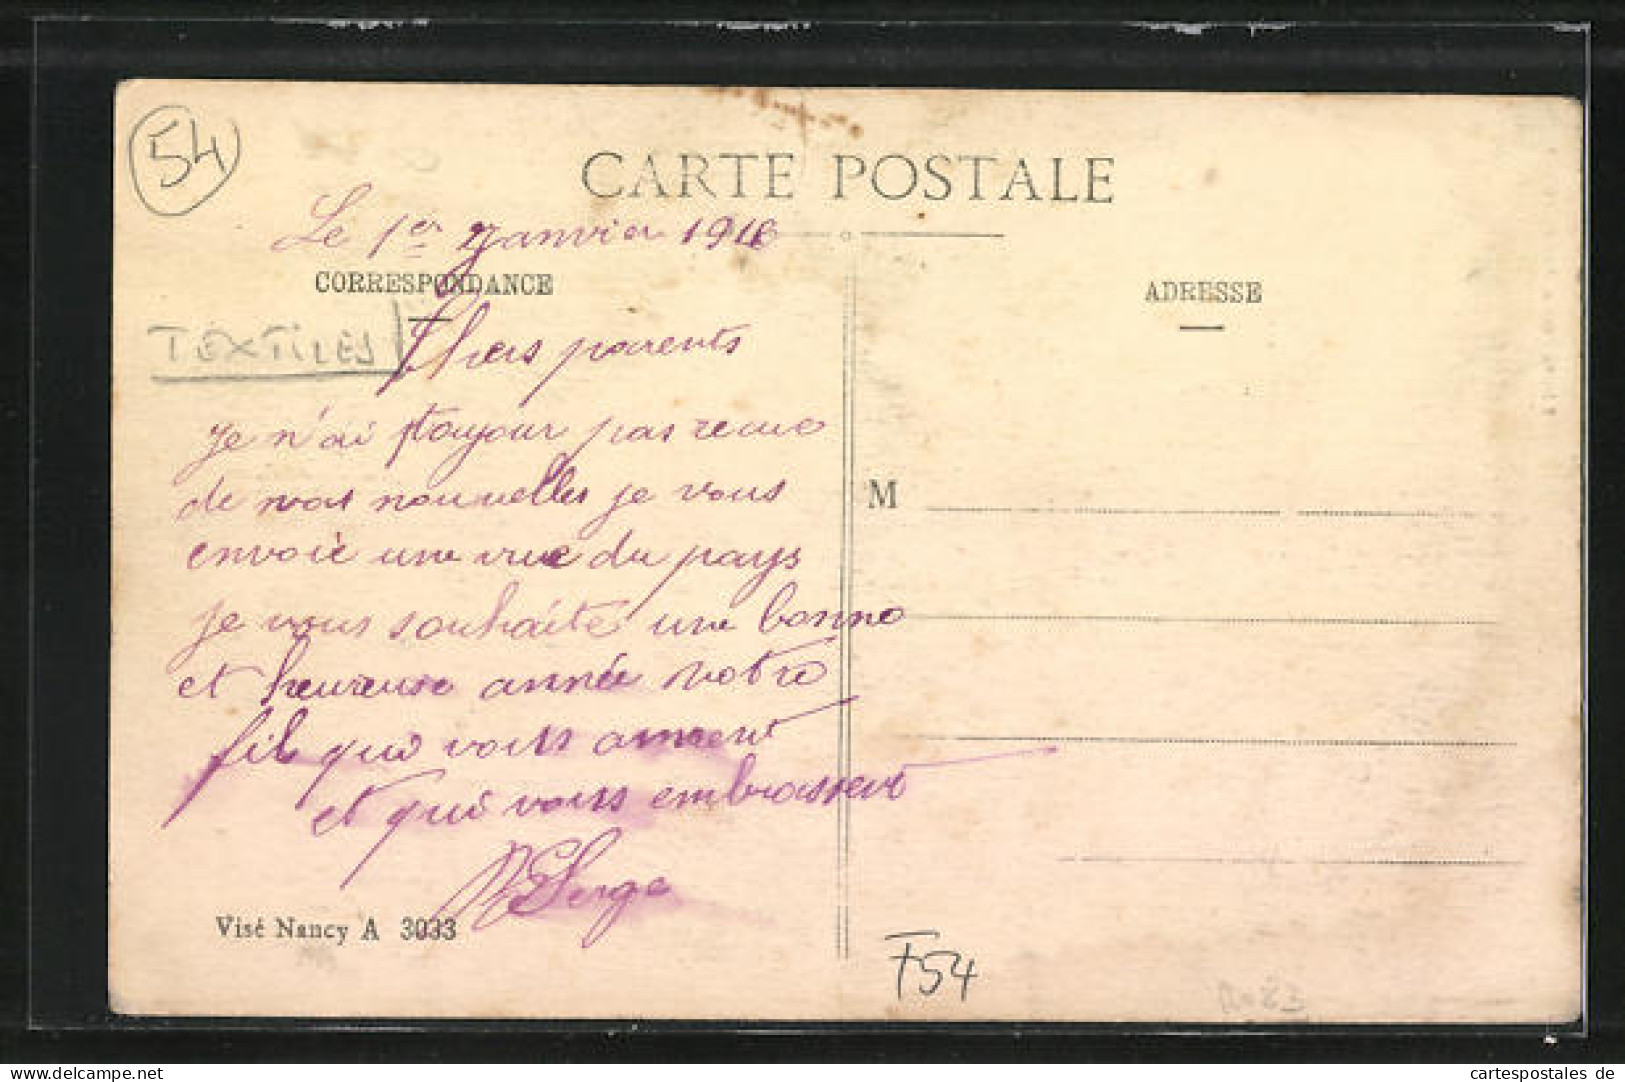 54
CARTE POSTALE
Le 1er Janvier 1916
CORRESPONDANCE
ADRESSE
TEXTILES
Chers parents
je n'ai toujour pas recue
de vos nouvelles je vous
M
envoie une vue du pays
je vous souhaite une bonne
et heureuse année votre
fils qui vous aiment
et qui vous embrassent
Serge
Visé Nancy A 3033
F54
cartespostales de